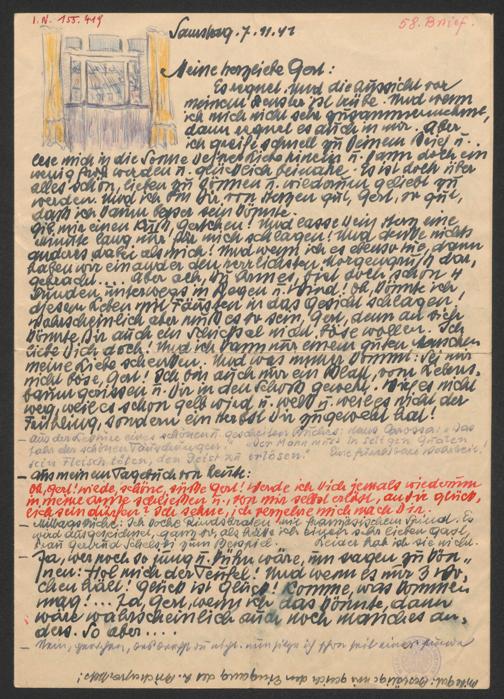 I.N. 155.419
58. Brief.
Samstag, 7.11.42
Meine herzliebe Gerl:
Es regnet. Und die Aussicht vor
meinem Fenster ist trübe. Und wenn
ich mich nicht sehr zusammennehme,
dann regnet es auch in mir. Aber
ich greife schnell zu Deinem Brief u.
lese mich in die Sonne Deiner Liebe hinein u. kann doch ein
wenig froh werden u. glücklich beinahe. Es ist doch über
alles schön, lieben zu können u. wiederum geliebt zu
werden. Und ich bin Dir von Herzen gut, Gerl, so gut,
dass ich kaum besser sein könnte.
Gib mir einen Kuß, Gerlchen! Und lasse Dein Herz eine
Minute lang nur für mich schlagen! Und denke nichts
anders dabei als mich! Und wenn ich es ebenso tue, dann
haben wir einander den herrlichsten Morgengruß dar-
gebracht.... Aber ach, Du Armes, bist doch schon 4
Stunden unterwegs in Regen u. Wind! Oh, könnte ich
diesem Leben mit Fäusten in das Gesicht schlagen!
Wahrscheinlich aber muß es so sein, Gerl, denn an Dich
könnte Dir auch ein Schicksal nicht böse wollen. Ich
liebe Dich doch! Und ich kann nur einem guten Menschen
meine Liebe schenken. Und was immer kommt: Sei mir
nicht böse, Gerl! Ich bin auch nur ein Blatt, vom Lebens-
baum gerissen u. Dir in den Schoß geweht. Wirf es nicht
weg, weil es schon gelb wird u. welk u. weil es nicht der
Frühling, sondern ein Herbst Dir zugeweht hat!
- Aus der Lektüre eines schönen u. gescheiten Buches: Hans Carossa: "Das
Jahr der schönen Täuschungen". "Der Mann muß in seligen Gluten
sein Fleisch töten, den Geist zu erlösen." Eine furchtbare Wahrheit!
- Aus meinem Tagebuch von heute:
Oh, Gerl! Müde, schöne, süße Gerl! Werde ich Dich jemals wiederum
in meine Arme schließen u. von mir selbst erlöst, an Dir glück-
lich sein dürfen? Ich sehne, ich verzehre mich nach Dir.
- Mittagsküche: Ich koche Rindsbraten mit französischem Spinat. Es
wird ausgezeichnet, ganz so, als hätte ich einen lieben Gast,
Frau Gertrud Schebesta zum Beispiel. Leider hab ich sie nicht.
- Ja, wer noch so jung u. kühn wäre, um sagen zu kön-
nen: Hol mich der Teufel! Und wenn es nur 3 Wo-
chen hält! Glück ist Glück! Komme, was kommen
mag!... Ja, Gerl, wenn ich das könnte, dann
wäre wahrscheinlich auch noch manches an-
ders. So aber....
- Nein, gerissen, aus